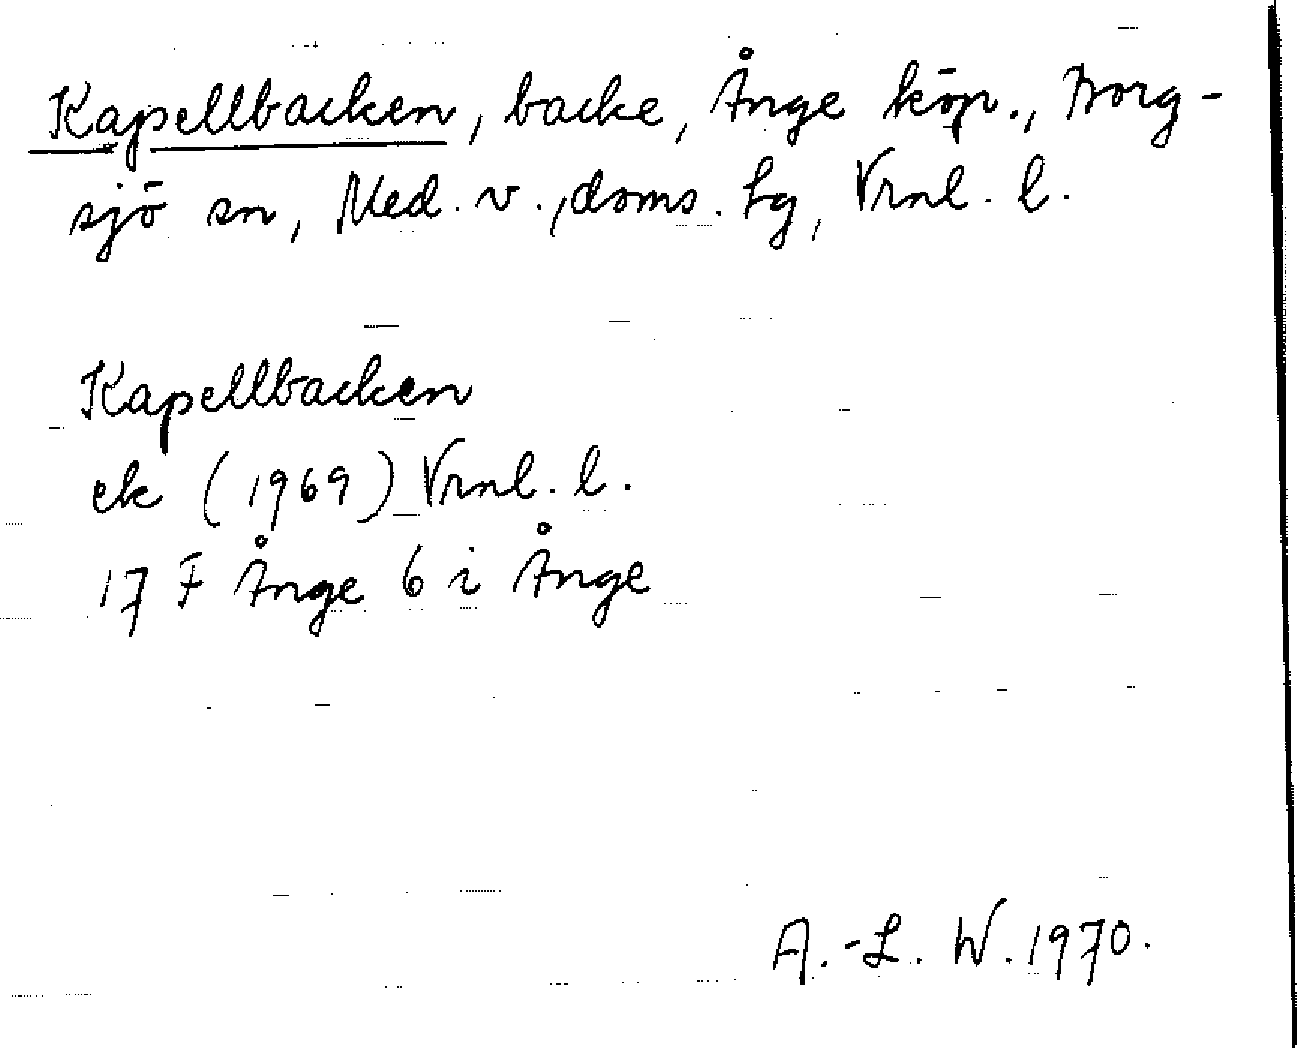 Kapellbacken, backe, Ånge köp., Borg-
sjö sn, Med. v., doms. tg, Vrnl. l.
Kapellbacken
ek (1969) Vrnl. l.
17 F Ånge 6 i Ånge
A.-L. W. 1970.